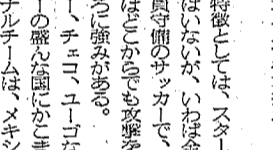 特徴としては、スター
はいないが、いわば全
員守備のサッカーで、
はどこからでも攻撃を
ろに強みがある。
ー、チェコ、ユーゴな
ーの盛んな国にかこま
ナルチームは、メキシ